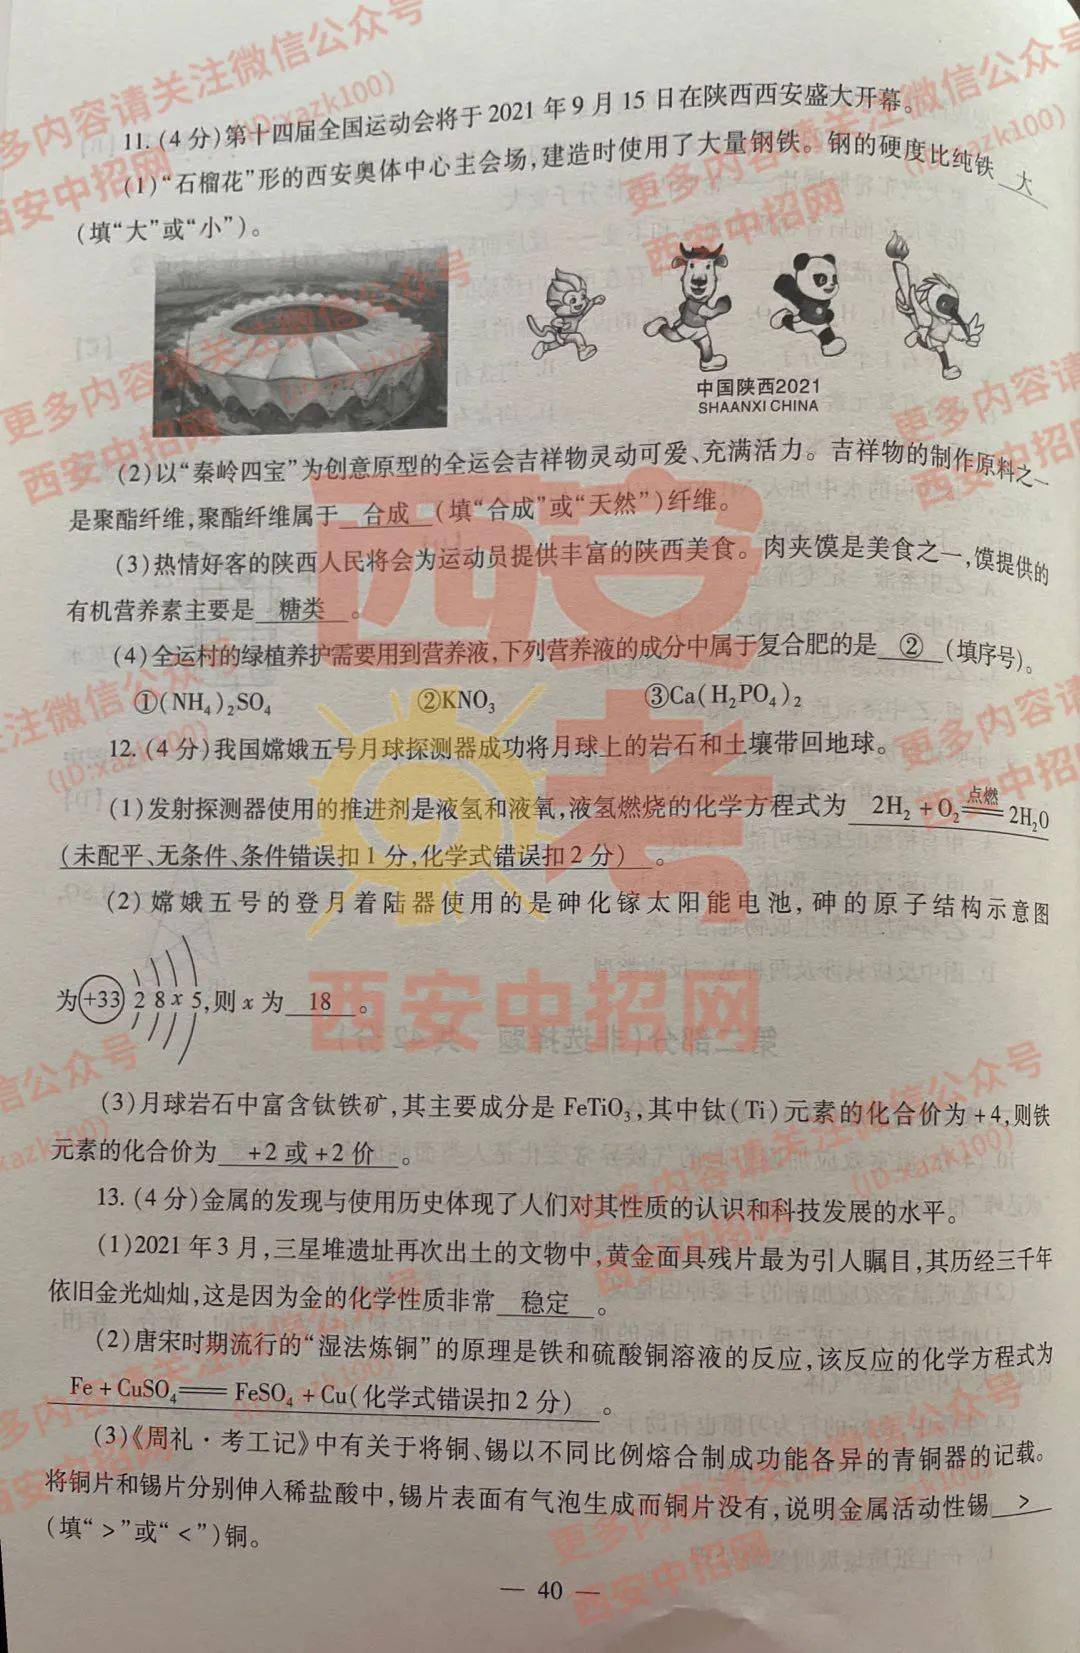 11. (4 分)第十四届全国运动会将于 2021 年 9 月 15 日在陕西西安盛大开幕。
(1)“石榴花”形的西安奥体中心主会场,建造时使用了大量钢铁。钢的硬度比纯铁 大
(填“大”或“小”)。
中国陕西2021
SHAANXI CHINA
(2)以“秦岭四宝”为创意原型的全运会吉祥物灵动可爱、充满活力。吉祥物的制作原料之一
是聚酯纤维,聚酯纤维属于 合成 (填“合成”或“天然”)纤维。
(3)热情好客的陕西人民将会为运动员提供丰富的陕西美食。肉夹馍是美食之一,馍提供的
有机营养素主要是 糖类 。
(4)全运村的绿植养护需要用到营养液,下列营养液的成分中属于复合肥的是 ② (填序号)。
①(NH₄)₂SO₄ ②KNO₃ ③Ca(H₂PO₄)₂
12. (4 分)我国嫦娥五号月球探测器成功将月球上的岩石和土壤带回地球。
(1)发射探测器使用的推进剂是液氢和液氧,液氢燃烧的化学方程式为 2H₂ + O₂ 点燃 2H₂O
(未配平、无条件、条件错误扣 1 分,化学式错误扣 2 分) 。
(2)嫦娥五号的登月着陆器使用的是砷化镓太阳能电池,砷的原子结构示意图
为 +33 2 8 x 5,则 x 为 18 。
(3)月球岩石中富含钛铁矿,其主要成分是 FeTiO₃,其中钛(Ti)元素的化合价为 +4,则铁
元素的化合价为 +2 或 +2 价 。
13. (4 分)金属的发现与使用历史体现了人们对其性质的认识和科技发展的水平。
(1)2021 年 3 月,三星堆遗址再次出土的文物中,黄金面具残片最为引人瞩目,其历经三千年
依旧金光灿灿,这是因为金的化学性质非常 稳定 。
(2)唐宋时期流行的“湿法炼铜”的原理是铁和硫酸铜溶液的反应,该反应的化学方程式为
Fe + CuSO₄ ══ FeSO₄ + Cu(化学式错误扣 2 分) 。
(3)《周礼·考工记》中有关于将铜、锡以不同比例熔合制成功能各异的青铜器的记载。
将铜片和锡片分别伸入稀盐酸中,锡片表面有气泡生成而铜片没有,说明金属活动性锡 >
(填“ > ”或“ < ”)铜。
— 40 —
更多内容请关注微信公众号
西安中招网
(ID:xazk100)
西安中考
西安中招网